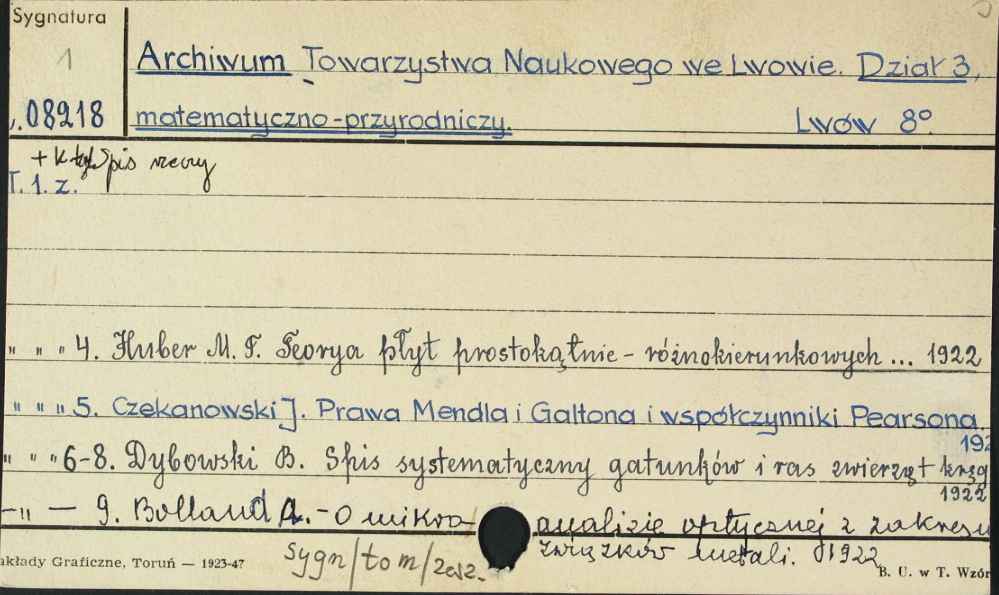 Sygnatura
1
08218
Archiwum Towarzystwa Naukowego we Lwowie. Dział 3,
matematyczno-przyrodniczy. Lwów 8°.
+ Spis rzeczy
T. 1. z.
" " " 4. Huber M. T. Teorya płyt prostokątnie - różnokierunkowych ... 1922
" " " 5. Czekanowski J. Prawa Mendla i Galtona i współczynniki Pearsona.
192
" " " 6-8. Dybowski B. Spis systematyczny gatunków i ras zwierząt kręg
1922
-"- 9. Bolland A. - O mikro analizie optycznej z zakresu
związków metali. 1922
akłady Graficzne, Toruń — 1923-47
sygn/tom/zesz.
B. U. w T. Wzór